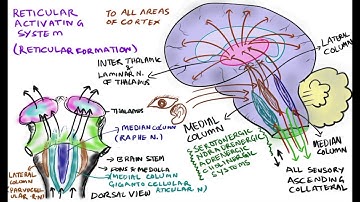 RETICULAR
ACTIVATING
SYSTEM
(RETICULAR FORMATION)
TO ALL AREAS
OF CORTEX
INTER THALAMIC
&
LAMINAR N.
OF THALAMUS
LATERAL
COLUMN
THALAMUS
MEDIAN COLUMN
(RAPHE N.)
BRAIN STEM
PONS & MEDULLA
MEDIAL COLUMN
GIGANTO CELLULAR
LATERAL
COLUMN
DORSAL VIEW
MEDIAL
COLUMN
SEROTONERGIC
NORADRENERGIC
ADRENERGIC
CHOLINERGIC
SYSTEMS
MEDIAN
COLUMN
ALL SENSORY
ASCENDING
COLLATERAL